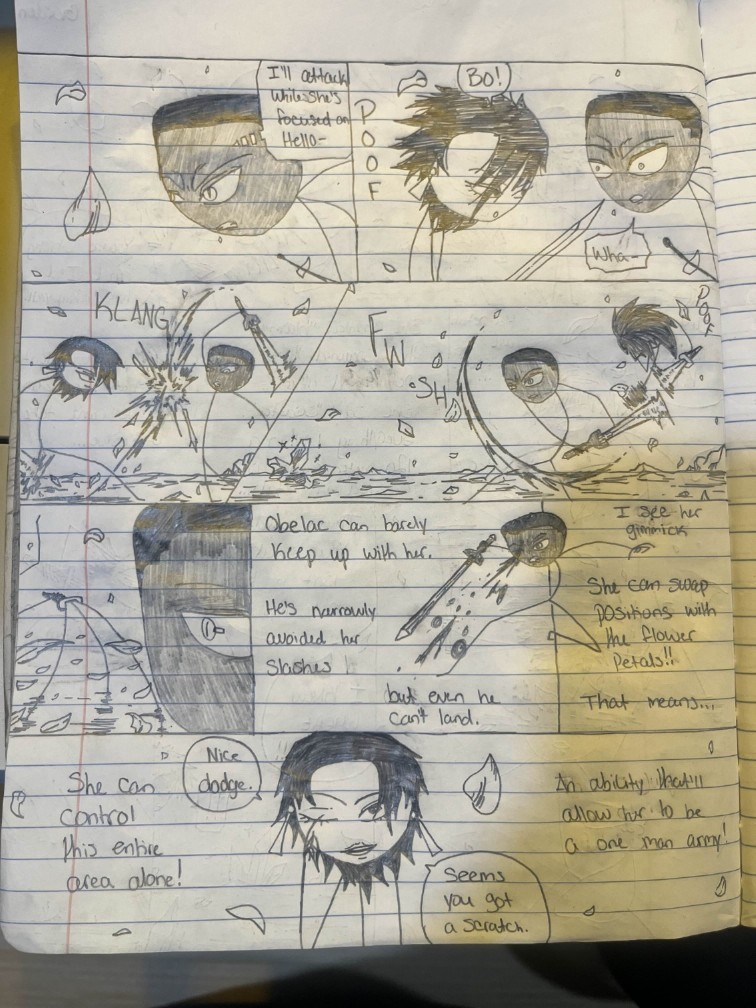 I'll attack
while she's
focused on
Hello-
POOF
Bo!
Wha-
KLANG
FWSH
POOF
Obelac can barely
keep up with her.
He's narrowly
avoided her
slashes
but even he
can't land.
I see her
gimmick
She can swap
positions with
the flower
petals!!
That means...
She can
control
this entire
area alone!
Nice
dodge.
Seems
you got
a scratch.
An ability that'll
allow her to be
a one man army!